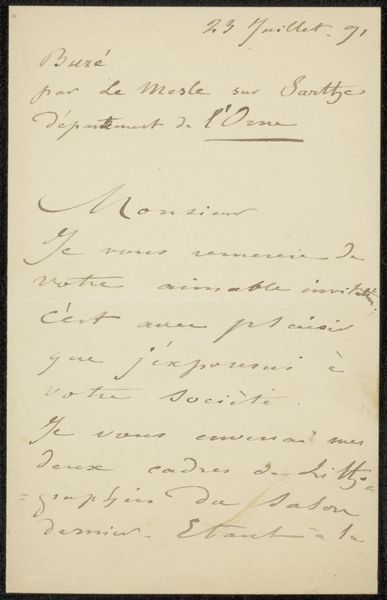 23 Juillet. 91
Buré
par Le Mesle sur Sarthe
département de l'Orne
Monsieur
Je vous remercie de
votre aimable invitation,
c'est avec plaisir
que j'exposerai à
votre Société.
Je vous enverrai mes
deux cadres de Litho=
=graphies du Salon
dernier. Etant à la